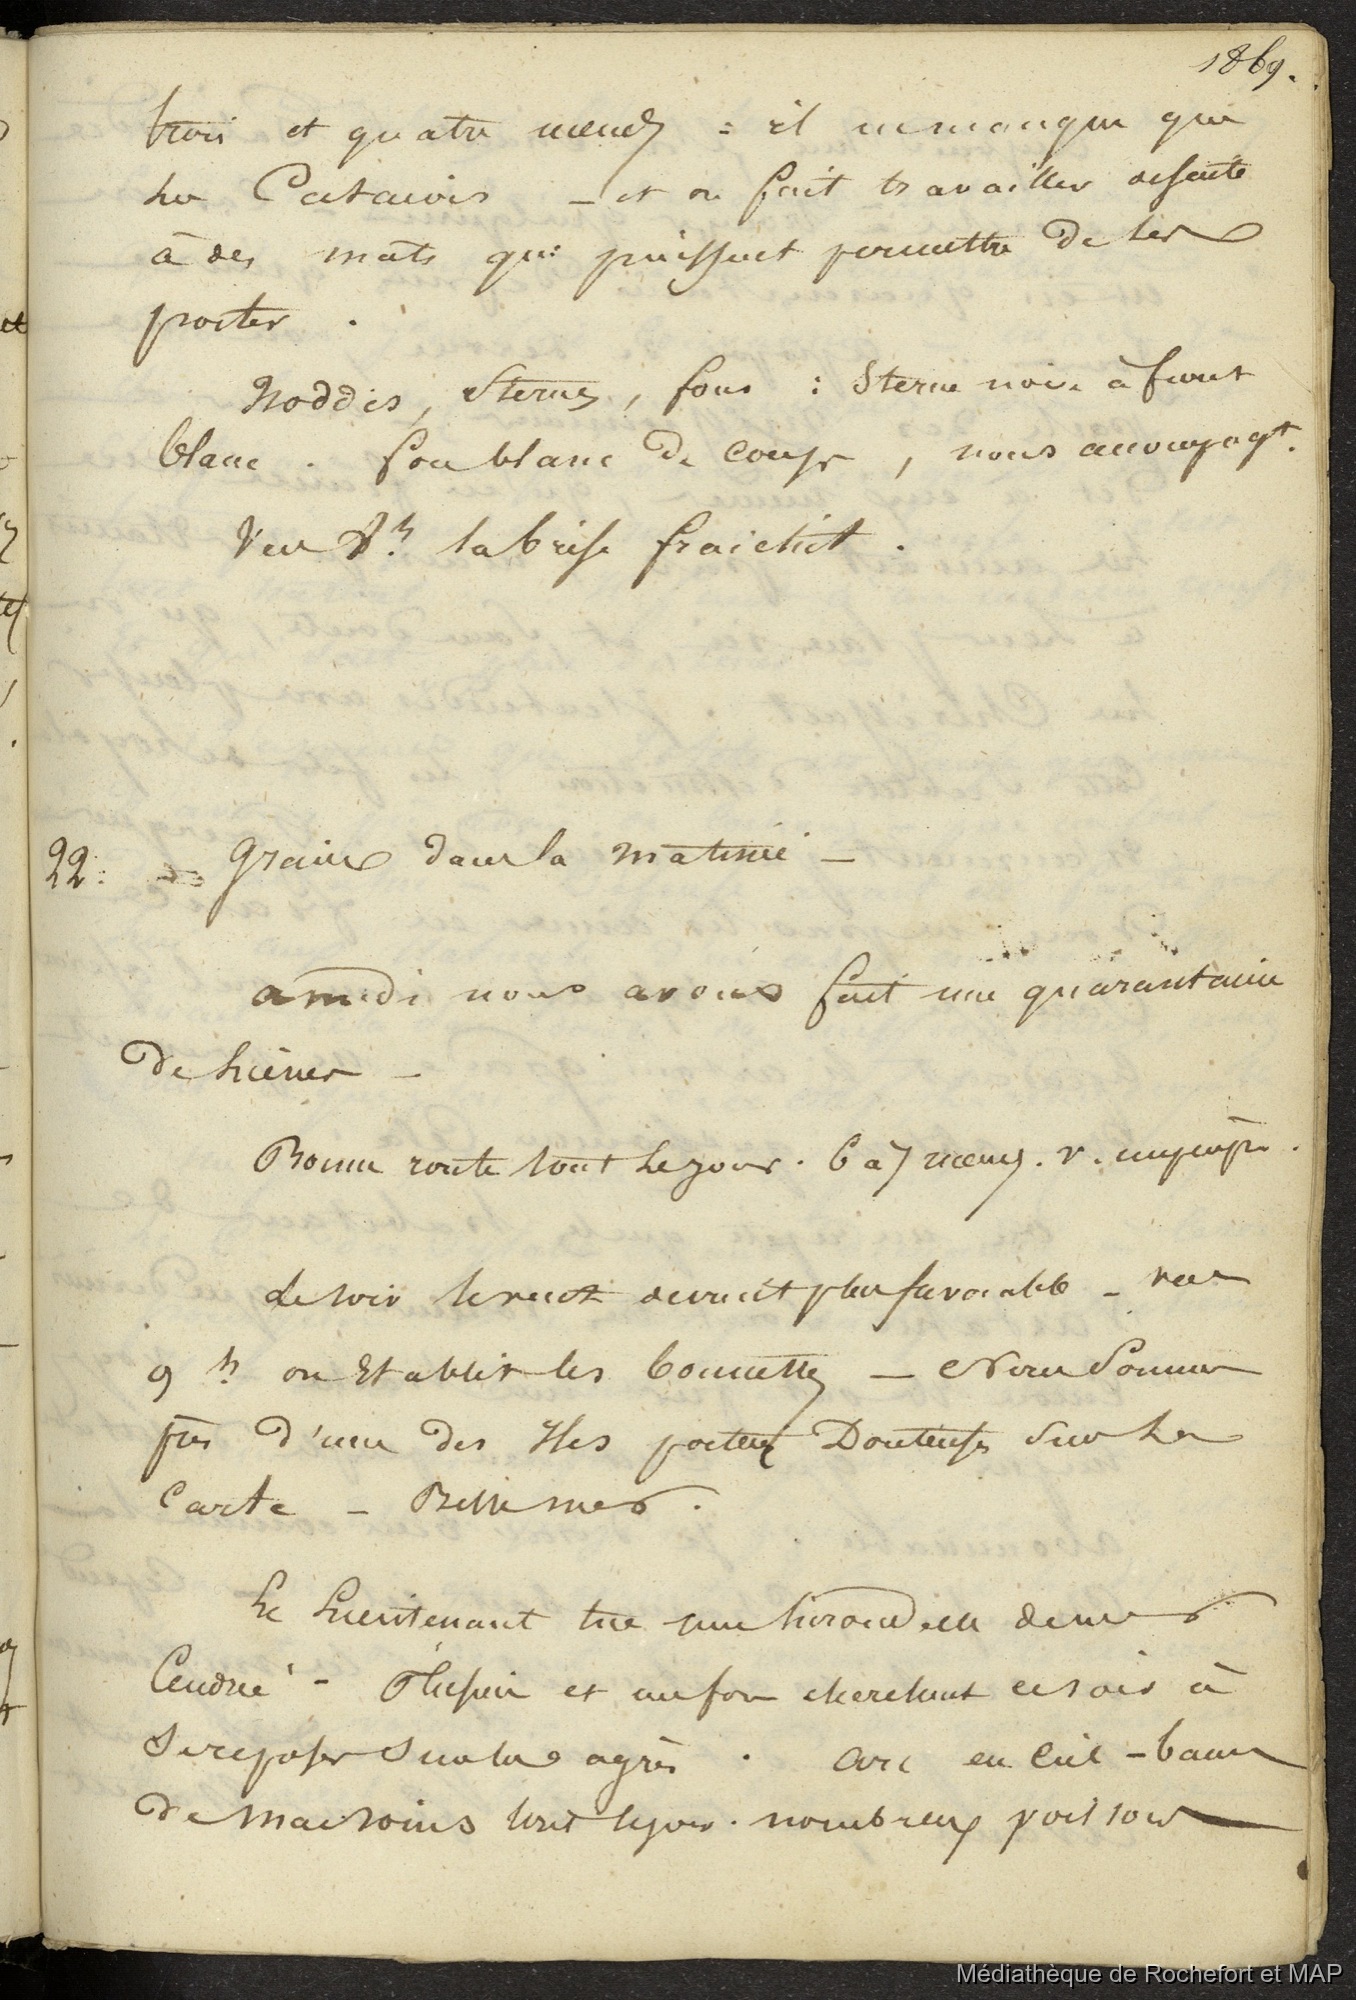 1869.
trois et quatre nœuds : il ne manque que
les Catacois – et on fait travailler de suite
à des mats qui puissent permettre de les
porter.
Noddis, Sternes, fous : Sterne noir à front
blanc. fou blanc de coups, nous accompagt.
Vers 8h. la brise fraichit.
22. – grains dans la matinée –
a midi nous avons fait une quarantaine
de lieues –
Bonne route tout le jour. 6 à 7 nœuds.
Le soir le vent devient plus favorable – vers
9 h. on Etablit les bonnettes – Nous Sommes
près d'une des Iles portées Douteuses Sur la
Carte – Belle mer.
Le Lieutenant tue une hirondelle de mer
Cendrée – et un fou cherchent ce soir à
Se reposer Sur les agrès. arc en Ciel – bancs
de Marsoins tout le jour. nombreux poissons
Médiathèque de Rochefort et MAP